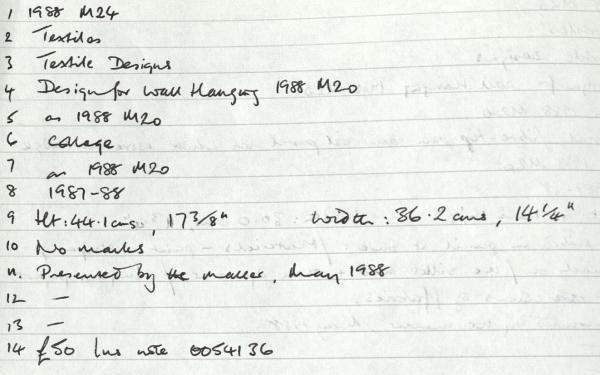 1 1988 M24
2 Textiles
3 Textile Designs
4 Design for Wall Hanging 1988 M20
5 as 1988 M20
6 Collage
7 as 1988 M20
8 1987-88
9 Ht: 44.1 cms, 17 3/8" Width: 36.2 cms, 14 1/4"
10 No marks
11. Presented by the maker, May 1988
12 —
13 —
14 £50 Ins note 0054136